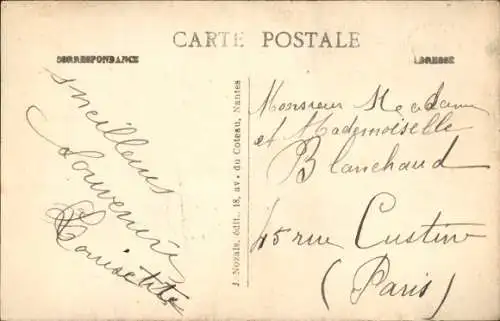 CARTE POSTALE
CORRESPONDANCE
ADRESSE
Meilleurs
Souvenirs
Louisette
J. Nozais, édit., 18, av. du Coteau, Nantes
Monsieur Madame
et Mademoiselle
Blanchaud
45 rue Custine
(Paris)